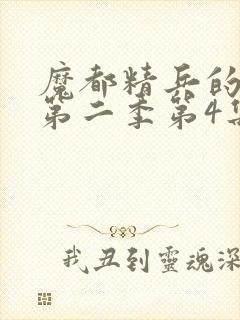 魔都精兵的
第二季第4集
我丑到靈魂深